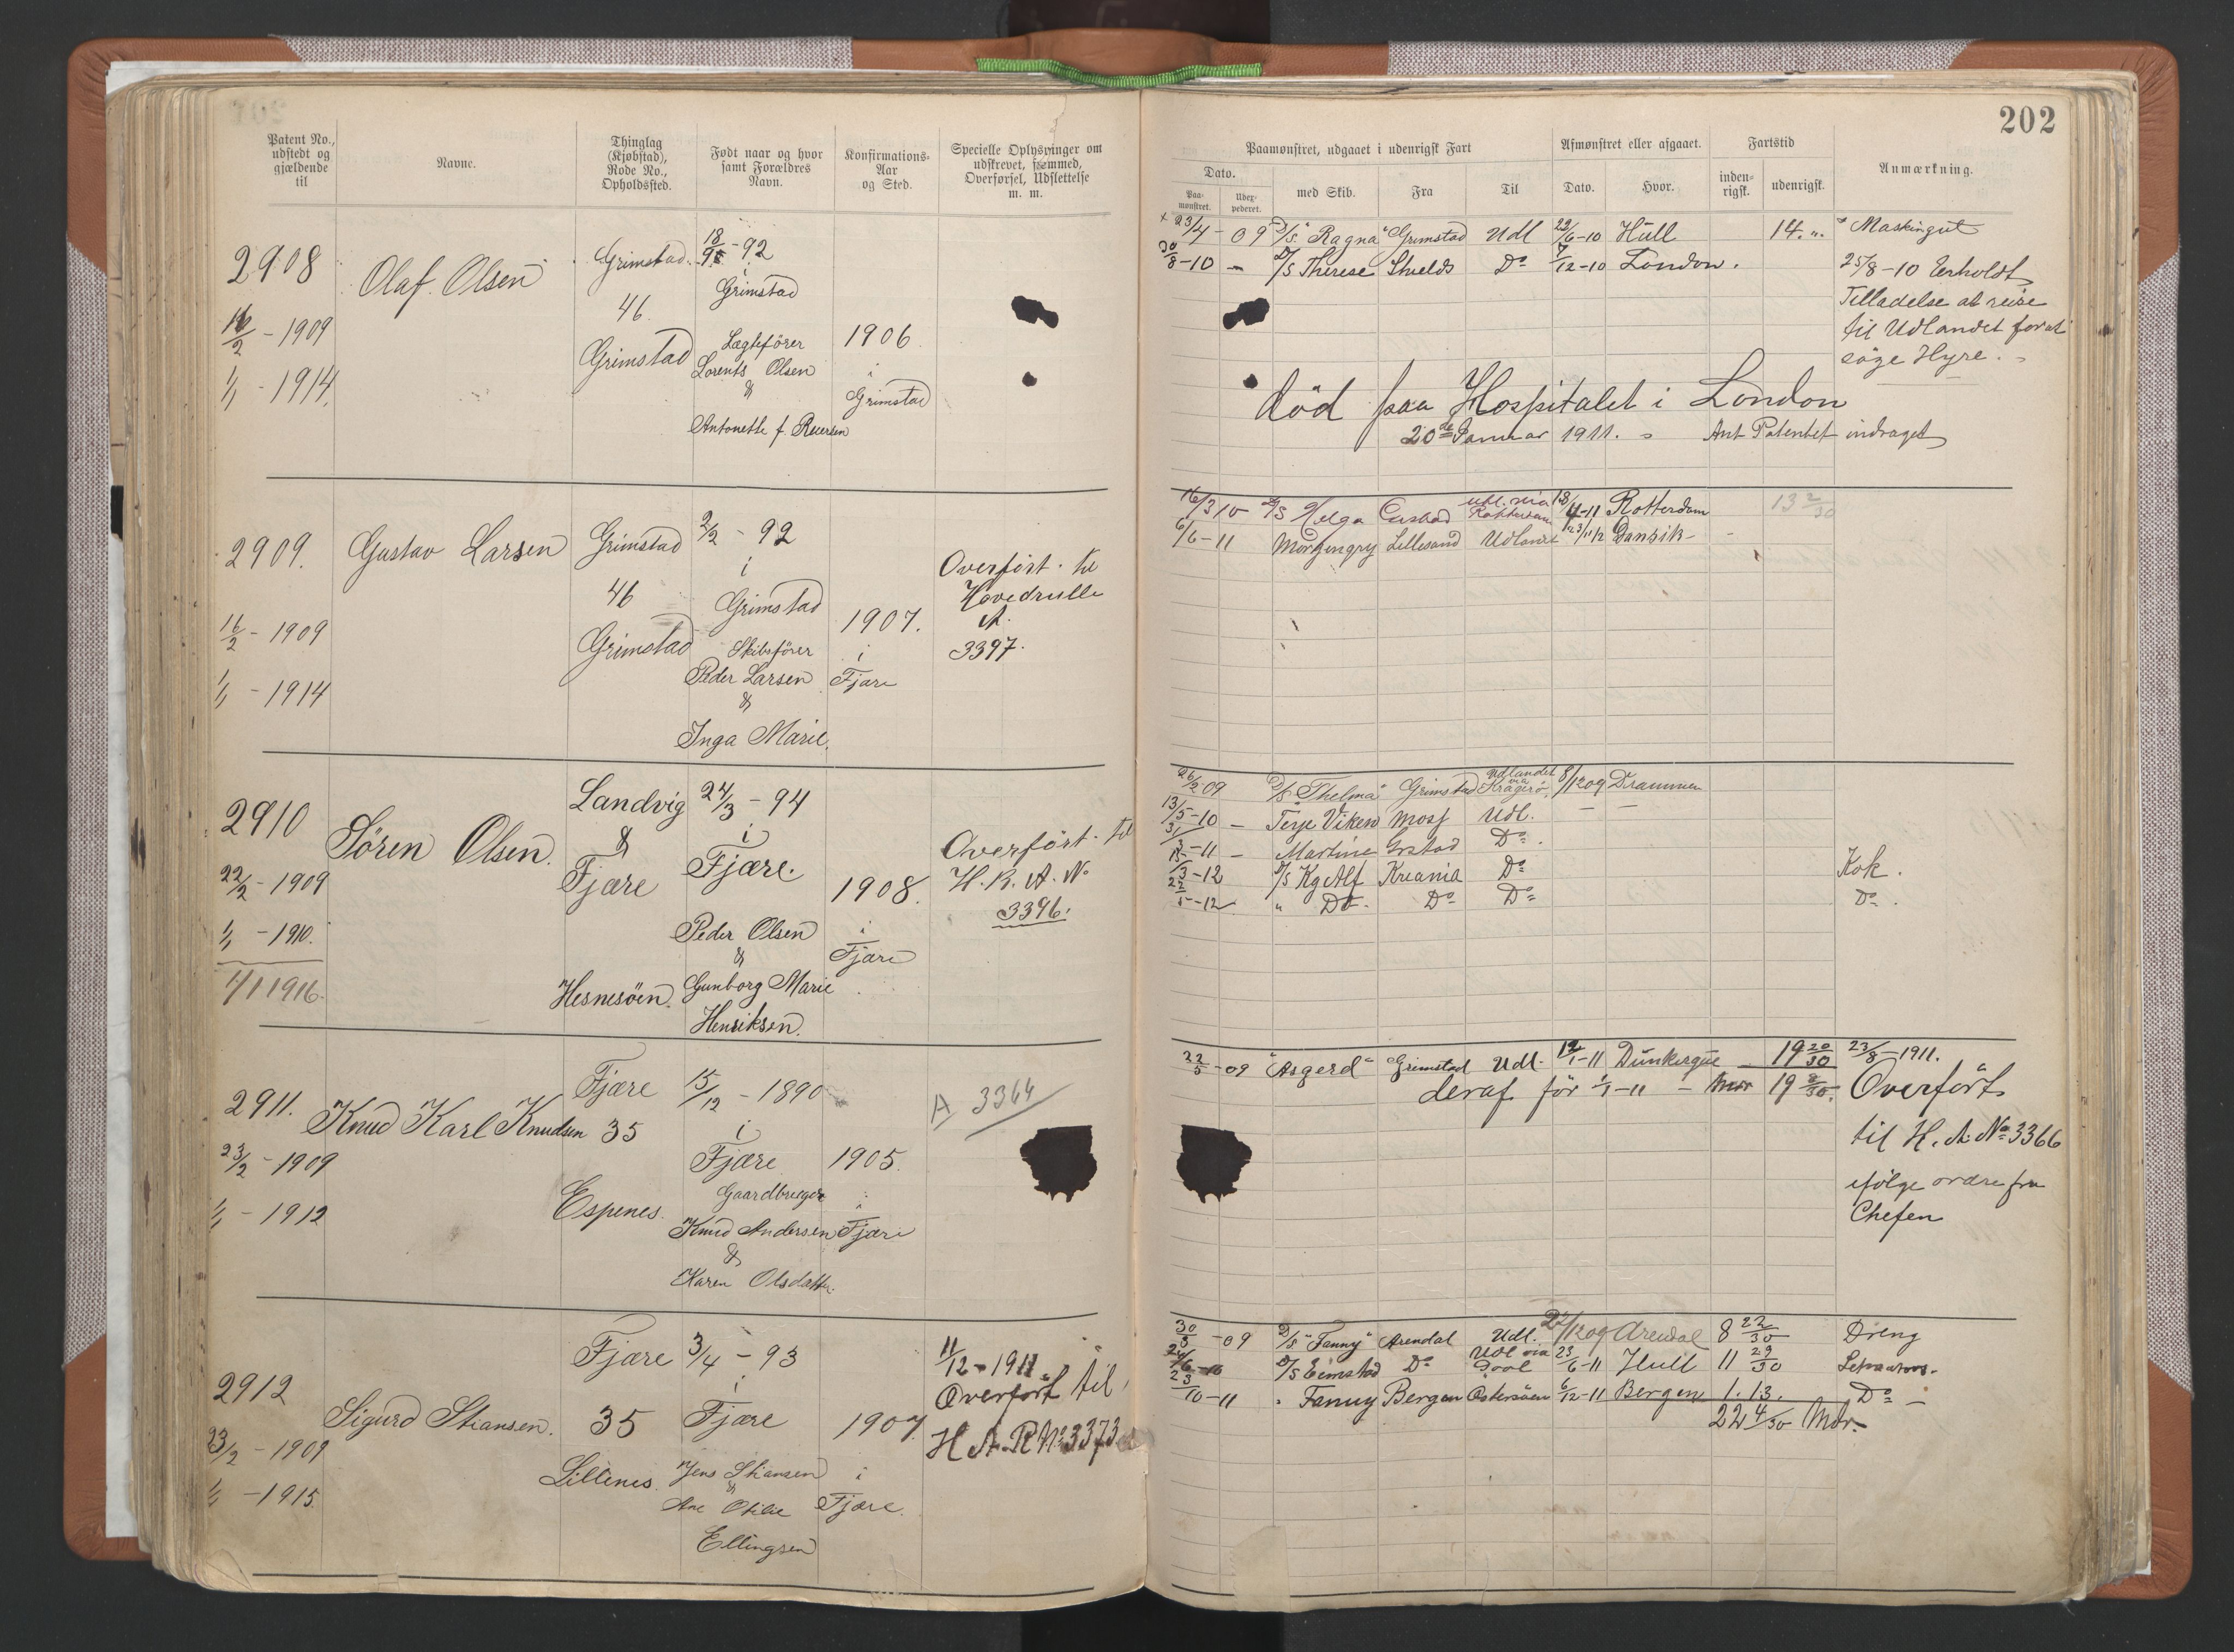 202
Patent No.,
udstedt og
gjældende
til
Navne.
Thinglag
(Kjøbstad),
Rode No.,
Opholdssted.
Født naar og hvor
samt Forældres
Navn.
Konfirmations-
Aar
og Sted.
Specielle Oplysninger om
udskrevet, fremmed,
Overførsel, Udslettelse
m. m.
Paamønstret, udgaaet i udenrigsk Fart
Dato.
Paa-
mønstret.
Udex-
pederet.
med Skib.
Fra
Til
Afmønstret eller afgaaet.
Dato.
Hvor.
Fartstid
inden-
rigsk.
udenrigsk.
Anmærkning.
2908
16/2 - 1909
1/1 - 1914.
Olaf Olsen
Grimstad
46
Grimstad
18/9 - 92
i
Grimstad
Lægtefører
Lorents Olsen
&
Antonette f.
1906
i
Grimstad
23/4 - 09 D/S "Ragna" Grimstad Udl 22/6-10 Hull 14. Maskingut
30/8-10 - D/S Therese Shields Do 7/12-10 London.
25/8-10 Erholdt
Tilladelse at reise
til Udlandet for at
søge Hyre.
död paa Hospitalet i London
20de Januar 1911. Ant Patentet indraget
2909.
16/2 - 1909
1/1 - 1914
Gustav Larsen
Grimstad
46
Grimstad
2/2 - 92
i
Grimstad
Skibsfører
Peder Larsen
&
Inga Marie.
1907.
i
Fjære
Overført til
Hovedrulle
A.
3397.
16/3 10 D/S Helga Udl. via Rotterdam 18/4-11 Rotterdam 13 2/30
6/6-11 Morgengry Lillesand Udlandet Dansik -
2910
22/2 - 1909
1/1 - 1910.
1/1 1916.
Sören Olsen.
Landvig
&
Fjære
Hesnesöen.
24/3 - 94
i
Fjære.
Peder Olsen
&
Gunborg Marie
Henriksen.
1908.
i
Fjære
Overført til
H. R. A. No
3396.
26/2 09 D/S "Thelma" Grimstad Udlandet via Kragerö. 8/12 09 Drammen
13/5-10 - Terje Viken Moss Udl. - -
-11 - Martine Grstad Do.
15/3-12 D/S Kg Alf Krania Do Kok.
-12 " Do. Do Do Do.
2911.
23/2 - 1909
1/1 - 1912
Knud Karl Knudsen
Fjære
35
Espenes.
15/12 - 1890
i
Fjære
Gaardbruger
Knud Andersen
&
Karen Olsdatter.
1905.
i
Fjære
A 3364
22/5 - 09 "Asgerd" Grimstad Udl. 12/1-11 Dunkerque - 19 20/30 23/8 - 1911.
deraf för 1/1-11 - Mdr 19 9/30. Overført
til H. A. No 3366
ifölge ordre fra
Chefen
2912
23/2 - 1909
1/1 - 1915.
Sigurd Stiansen.
Fjære
35
Lillenes.
3/4 - 93
i
Fjære
Jens Stiansen
&
Ane Otilie
Ellingsen
1907.
i
Fjære.
11/12 - 1911
Overført til
H. A. R No 3373
30/3 - 09 D/S "Fanny" Arendal Udl. 22/12 09 Arendal 8 22/30 Dreng
24/6 - 10 D/S Eimstad Do Udl via 23/6-11 Hull 11 29/30
23/10 - 11 " Fanny Bergen Østersøen 6/12-11 Bergen 1. 13. Do -
22 4/30 Mdr.